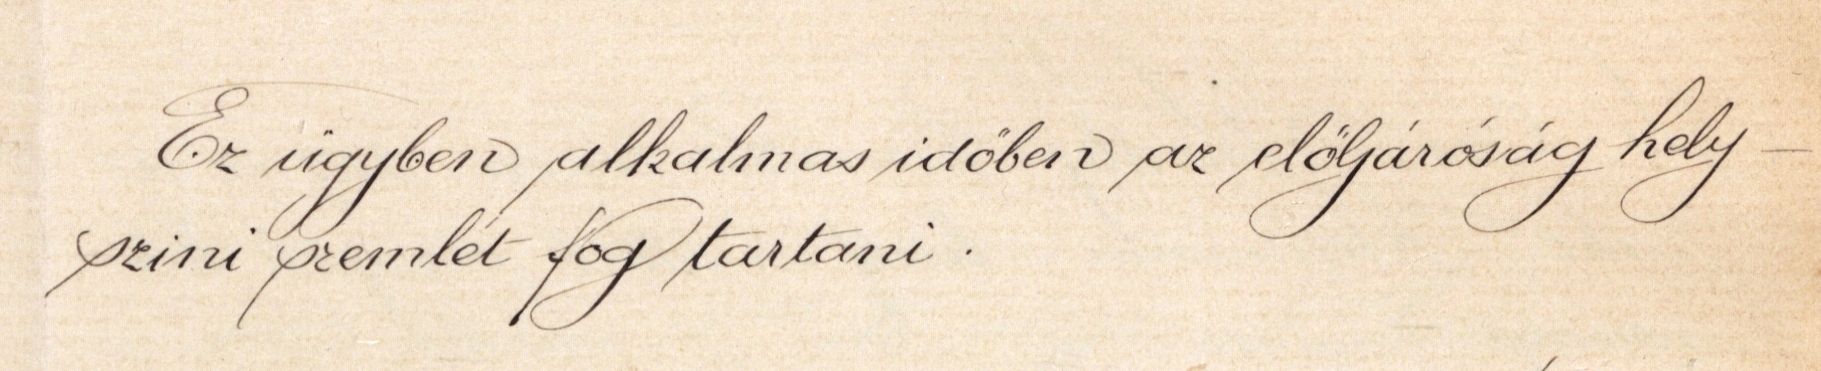 Ez ügyben alkalmas időben az előljáróság hely-
szini szemlét fog tartani.